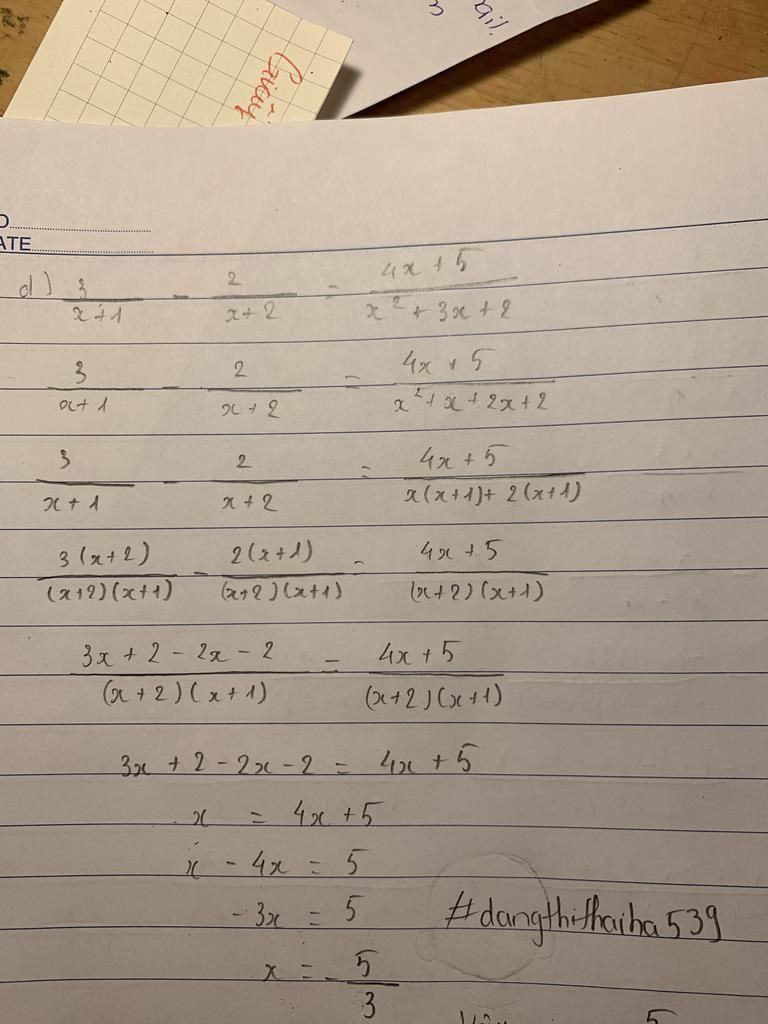 O
ATE
d) 3/(x+1) - 2/(x+2) = (4x+5)/(x²+3x+2)
3/(x+1) - 2/(x+2) = (4x+5)/(x²+x+2x+2)
3/(x+1) - 2/(x+2) = (4x+5)/(x(x+1)+2(x+1))
3(x+2)/((x+2)(x+1)) - 2(x+1)/((x+2)(x+1)) = (4x+5)/((x+2)(x+1))
(3x+2-2x-2)/((x+2)(x+1)) = (4x+5)/((x+2)(x+1))
3x + 2 - 2x - 2 = 4x + 5
x = 4x + 5
x - 4x = 5
-3x = 5
#dangthithaiha539
x = -5/3
5